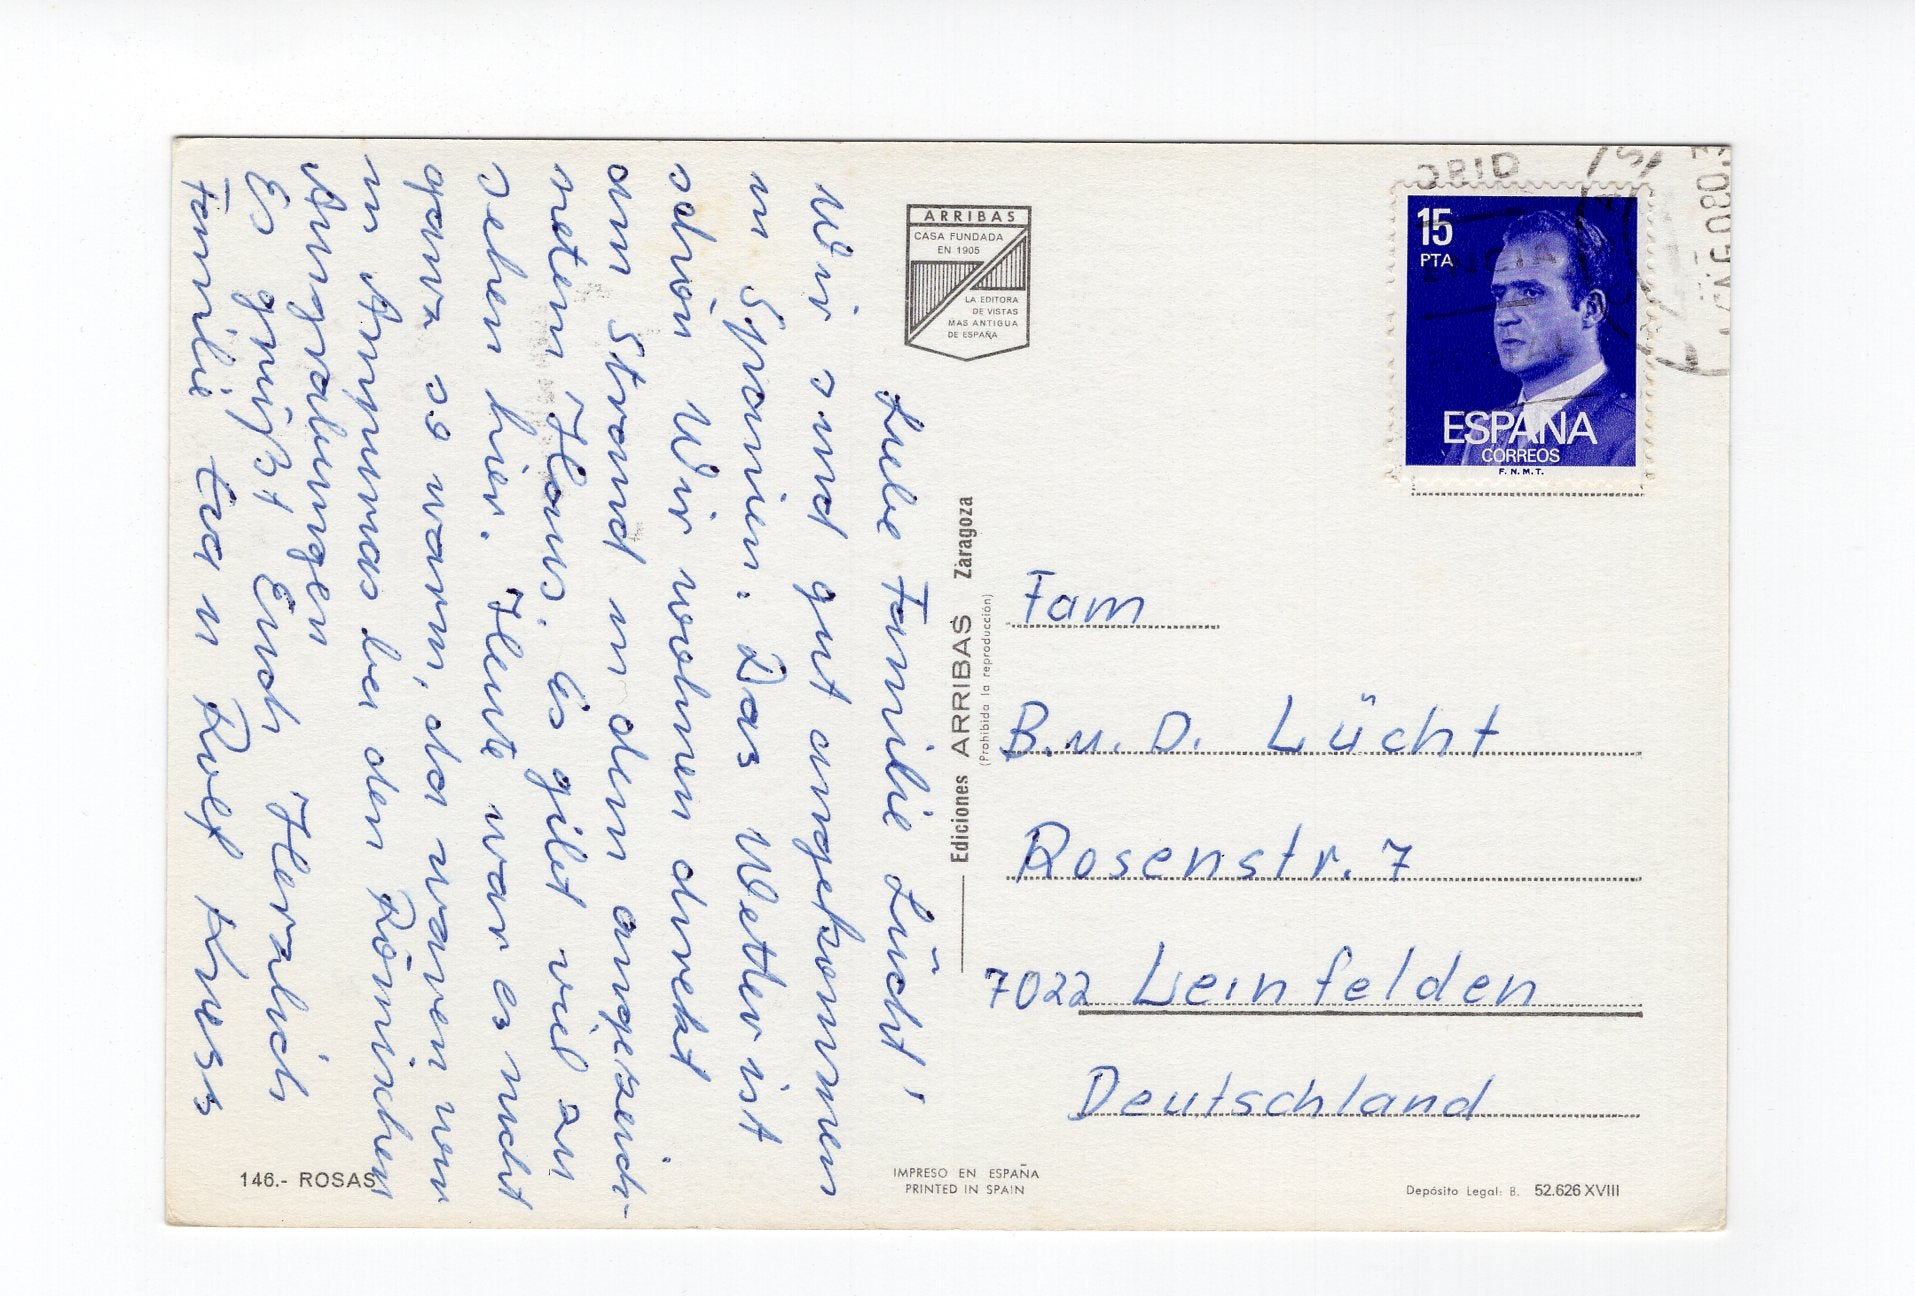 Liebe Familie Lücht!
Wir sind gut angekommen
in Spanien. Das Wetter ist
schön Wir wohnen direkt
am Strand in dem angezeich-
neten Haus. Es gibt viel zu
sehen hier. Heute war es nicht
ganz so warm, da waren wir
in Ampurias bei den Römischen
Ausgrabungen
Es grüßt Euch Herzlich
Familie u Rolf Kruss
ARRIBAS
CASA FUNDADA
EN 1905
LA EDITORA
DE VISTAS
MAS ANTIGUA
DE ESPAÑA
Ediciones ARRIBAS Zaragoza
(Prohibida la reproducción)
15
PTA
ESPAÑA
CORREOS
F.N.M.T.
Fam
B. u. D. Lücht
Rosenstr. 7
7022 Leinfelden
Deutschland
146.- ROSAS
IMPRESO EN ESPAÑA
PRINTED IN SPAIN
Depósito Legal: B. 52.626 XVIII